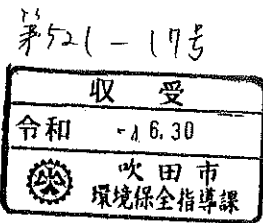 第521-17号
収受
令和 -4 6.30
吹田市
環境保全指導課